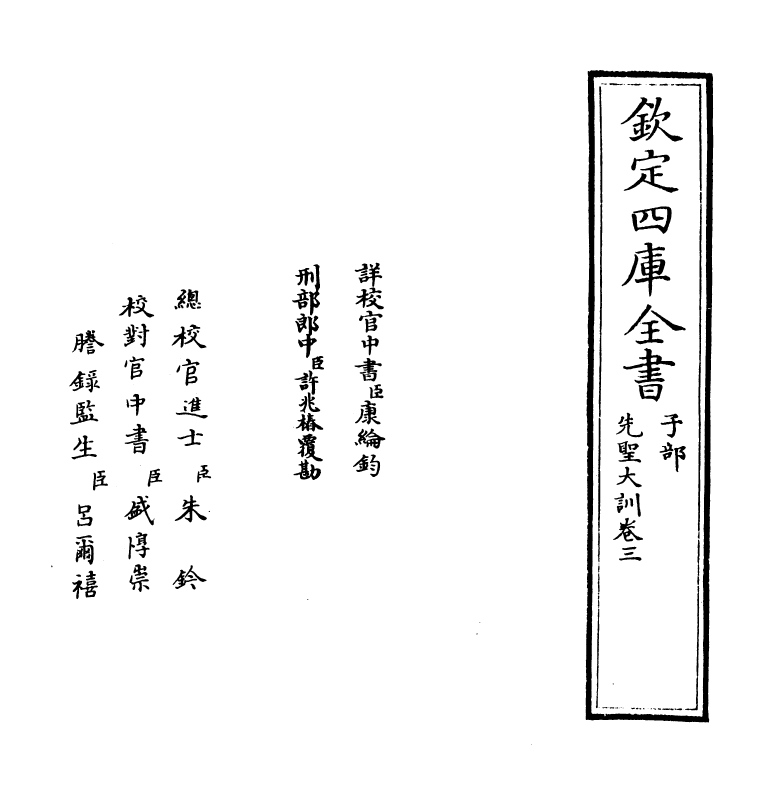 欽定四庫全書
子部
先聖大訓卷三
詳校官中書臣康綸鈞
刑部郎中臣許兆椿覆勘
總校官進士臣朱鈐
校對官中書臣盛惇崇
謄錄監生臣呂爾禧